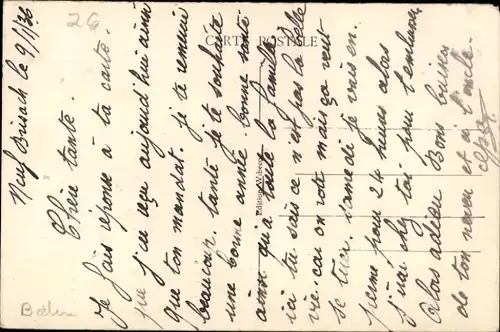 26
CARTE POSTALE
Neuf Brisach le 9/1/36
Chère tante.
Je fais réponse à ta carte.
que j'ai reçu aujourd'hui ainsi
que ton mandat. je te remercie
beaucoup. tante je te souhaite
une bonne année bonne santé
ainsi qu'à toute la famille
ici tu sais ce n'est pas la belle
vie. car on rote mais ça veut
se tirer. samedi je vais en
perme pour 24 heures alors
j'irai chez toi pour t'embrasser
Alors adieu Bons baisers
de ton neveu et à l'oncle.
Edition Weber